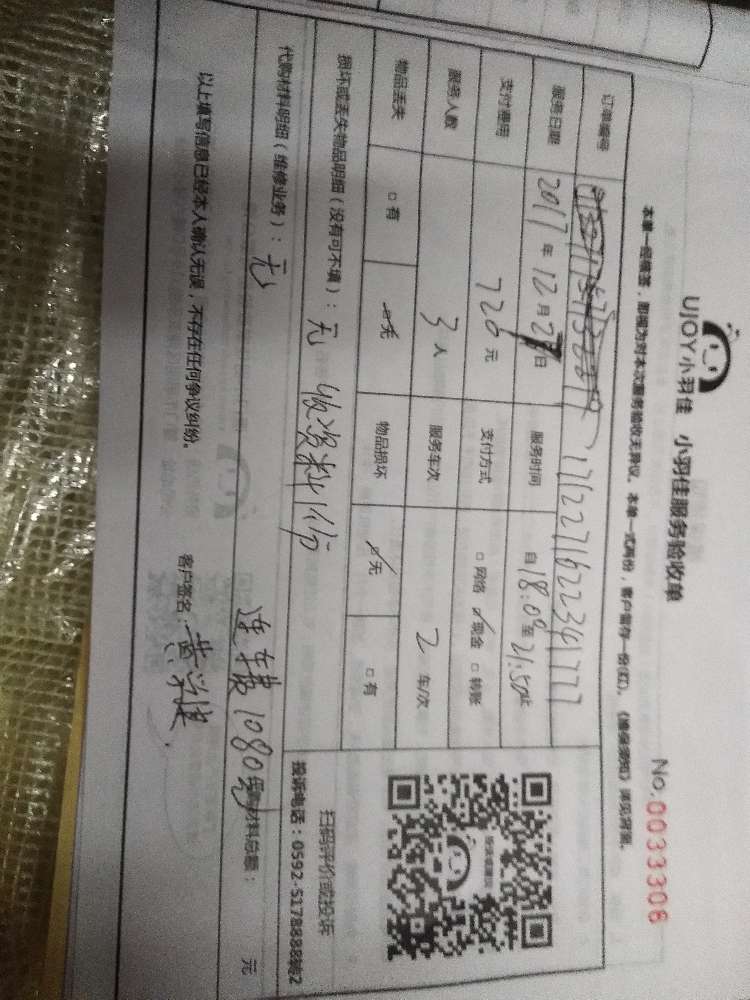 UJOY小羽佳 小羽佳服务验收单
No.0033308
本单一经填签，即视为对本次服务验收无异议。本单一式两份，客户留存一份(红)。《维保须知》详见背景。
订单编号 17122716223417 77
服务日期 2017年12月2日 服务时间 自18:00至21:50止
支付费用 720元 支付方式 □网络 ☑现金 □转账
服务人数 3人 服务车次 2车/次
物品丢失 □有 ☑无 物品损坏 ☑无 □有
损坏或丢失物品明细（没有可不填）：无 收资料1份
扫码评价或投诉
投诉电话：0592-5178888转2
代购材料明细（维修业务）：无 连车费1080元 代购材料总额： 元
以上填写信息已经本人确认无误，不存在任何争议纠纷。
客户签名：黄